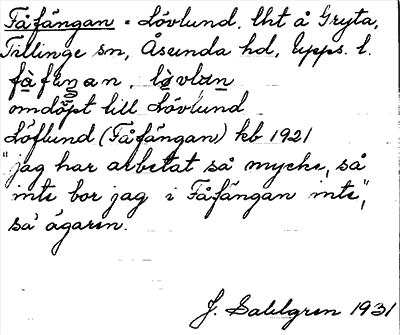 Fåfängan = Lövlund, lht å Gryta,
Tillinge sn, Åsunda hd, Upps. l.
fàfäŋan, lövlun
omdöpt till Lövlund
Löflund (Fåfängan) kb 1921
"jag har arbetat så mycke, så
inte bor jag i Fåfängan inte",
sa' ägaren.
J. Sahlgren 1931